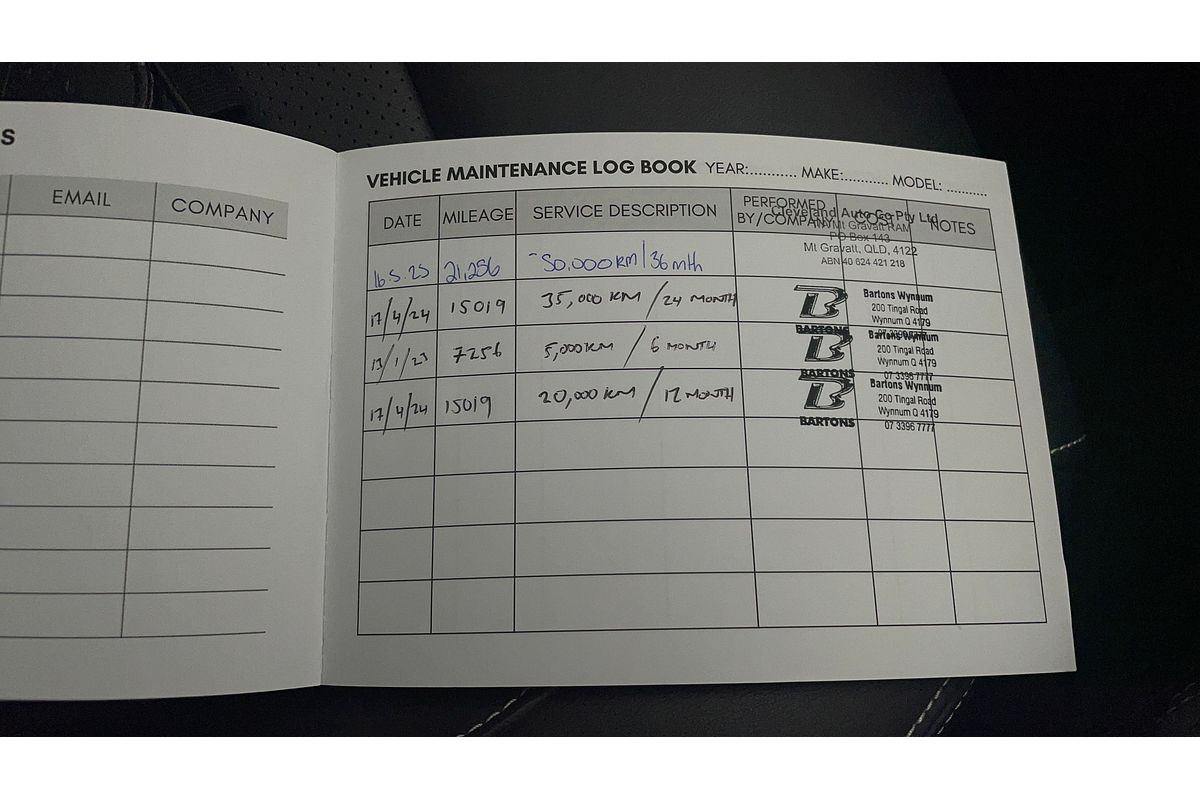 S
EMAIL COMPANY
VEHICLE MAINTENANCE LOG BOOK YEAR:........... MAKE:.......... MODEL: ..........
DATE MILEAGE SERVICE DESCRIPTION PERFORMED BY/COMPANY COST NOTES
Cleveland Auto Co Pty Ltd
T/A Mt Gravatt RAM
PO Box 143
Mt Gravatt, QLD, 4122
ABN 40 624 421 218
16.5.25 21,256 50,000km/36mth
17/4/24 15019 35,000 KM / 24 MONTH
BARTONS
Bartons Wynnum
200 Tingal Road
Wynnum Q 4179
07 3396 7777
13/1/23 7256 5,000KM / 6 MONTH
BARTONS
Bartons Wynnum
200 Tingal Road
Wynnum Q 4179
07 3396 7777
17/4/24 15019 20,000 KM / 12 MONTH
BARTONS
Bartons Wynnum
200 Tingal Road
Wynnum Q 4179
07 3396 7777